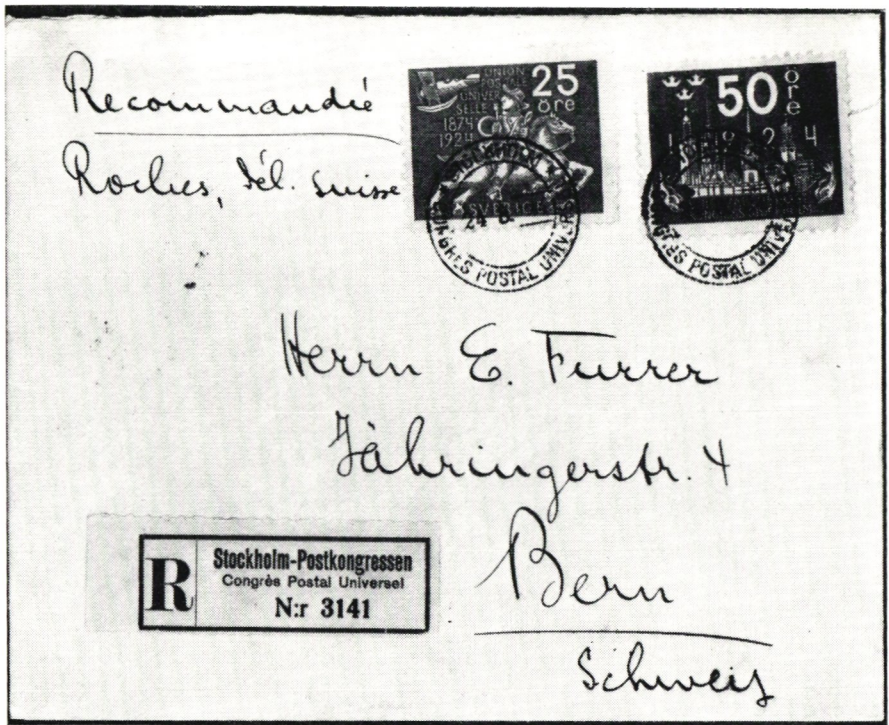 Recommandée
Roches, Dél. suisse
UNION
UNIVER
SELLE
1874
1924
25
öre
SVERIGE
50
öre
1924
STOCKHOLM
24 8.
CONGRÈS POSTAL UNIVERS
CONGRÈS POSTAL UNIV
Herrn E. Furrer
Zähringerstr. 4
Bern
Schweiz
R
Stockholm-Postkongressen
Congrès Postal Universel
N:r 3141